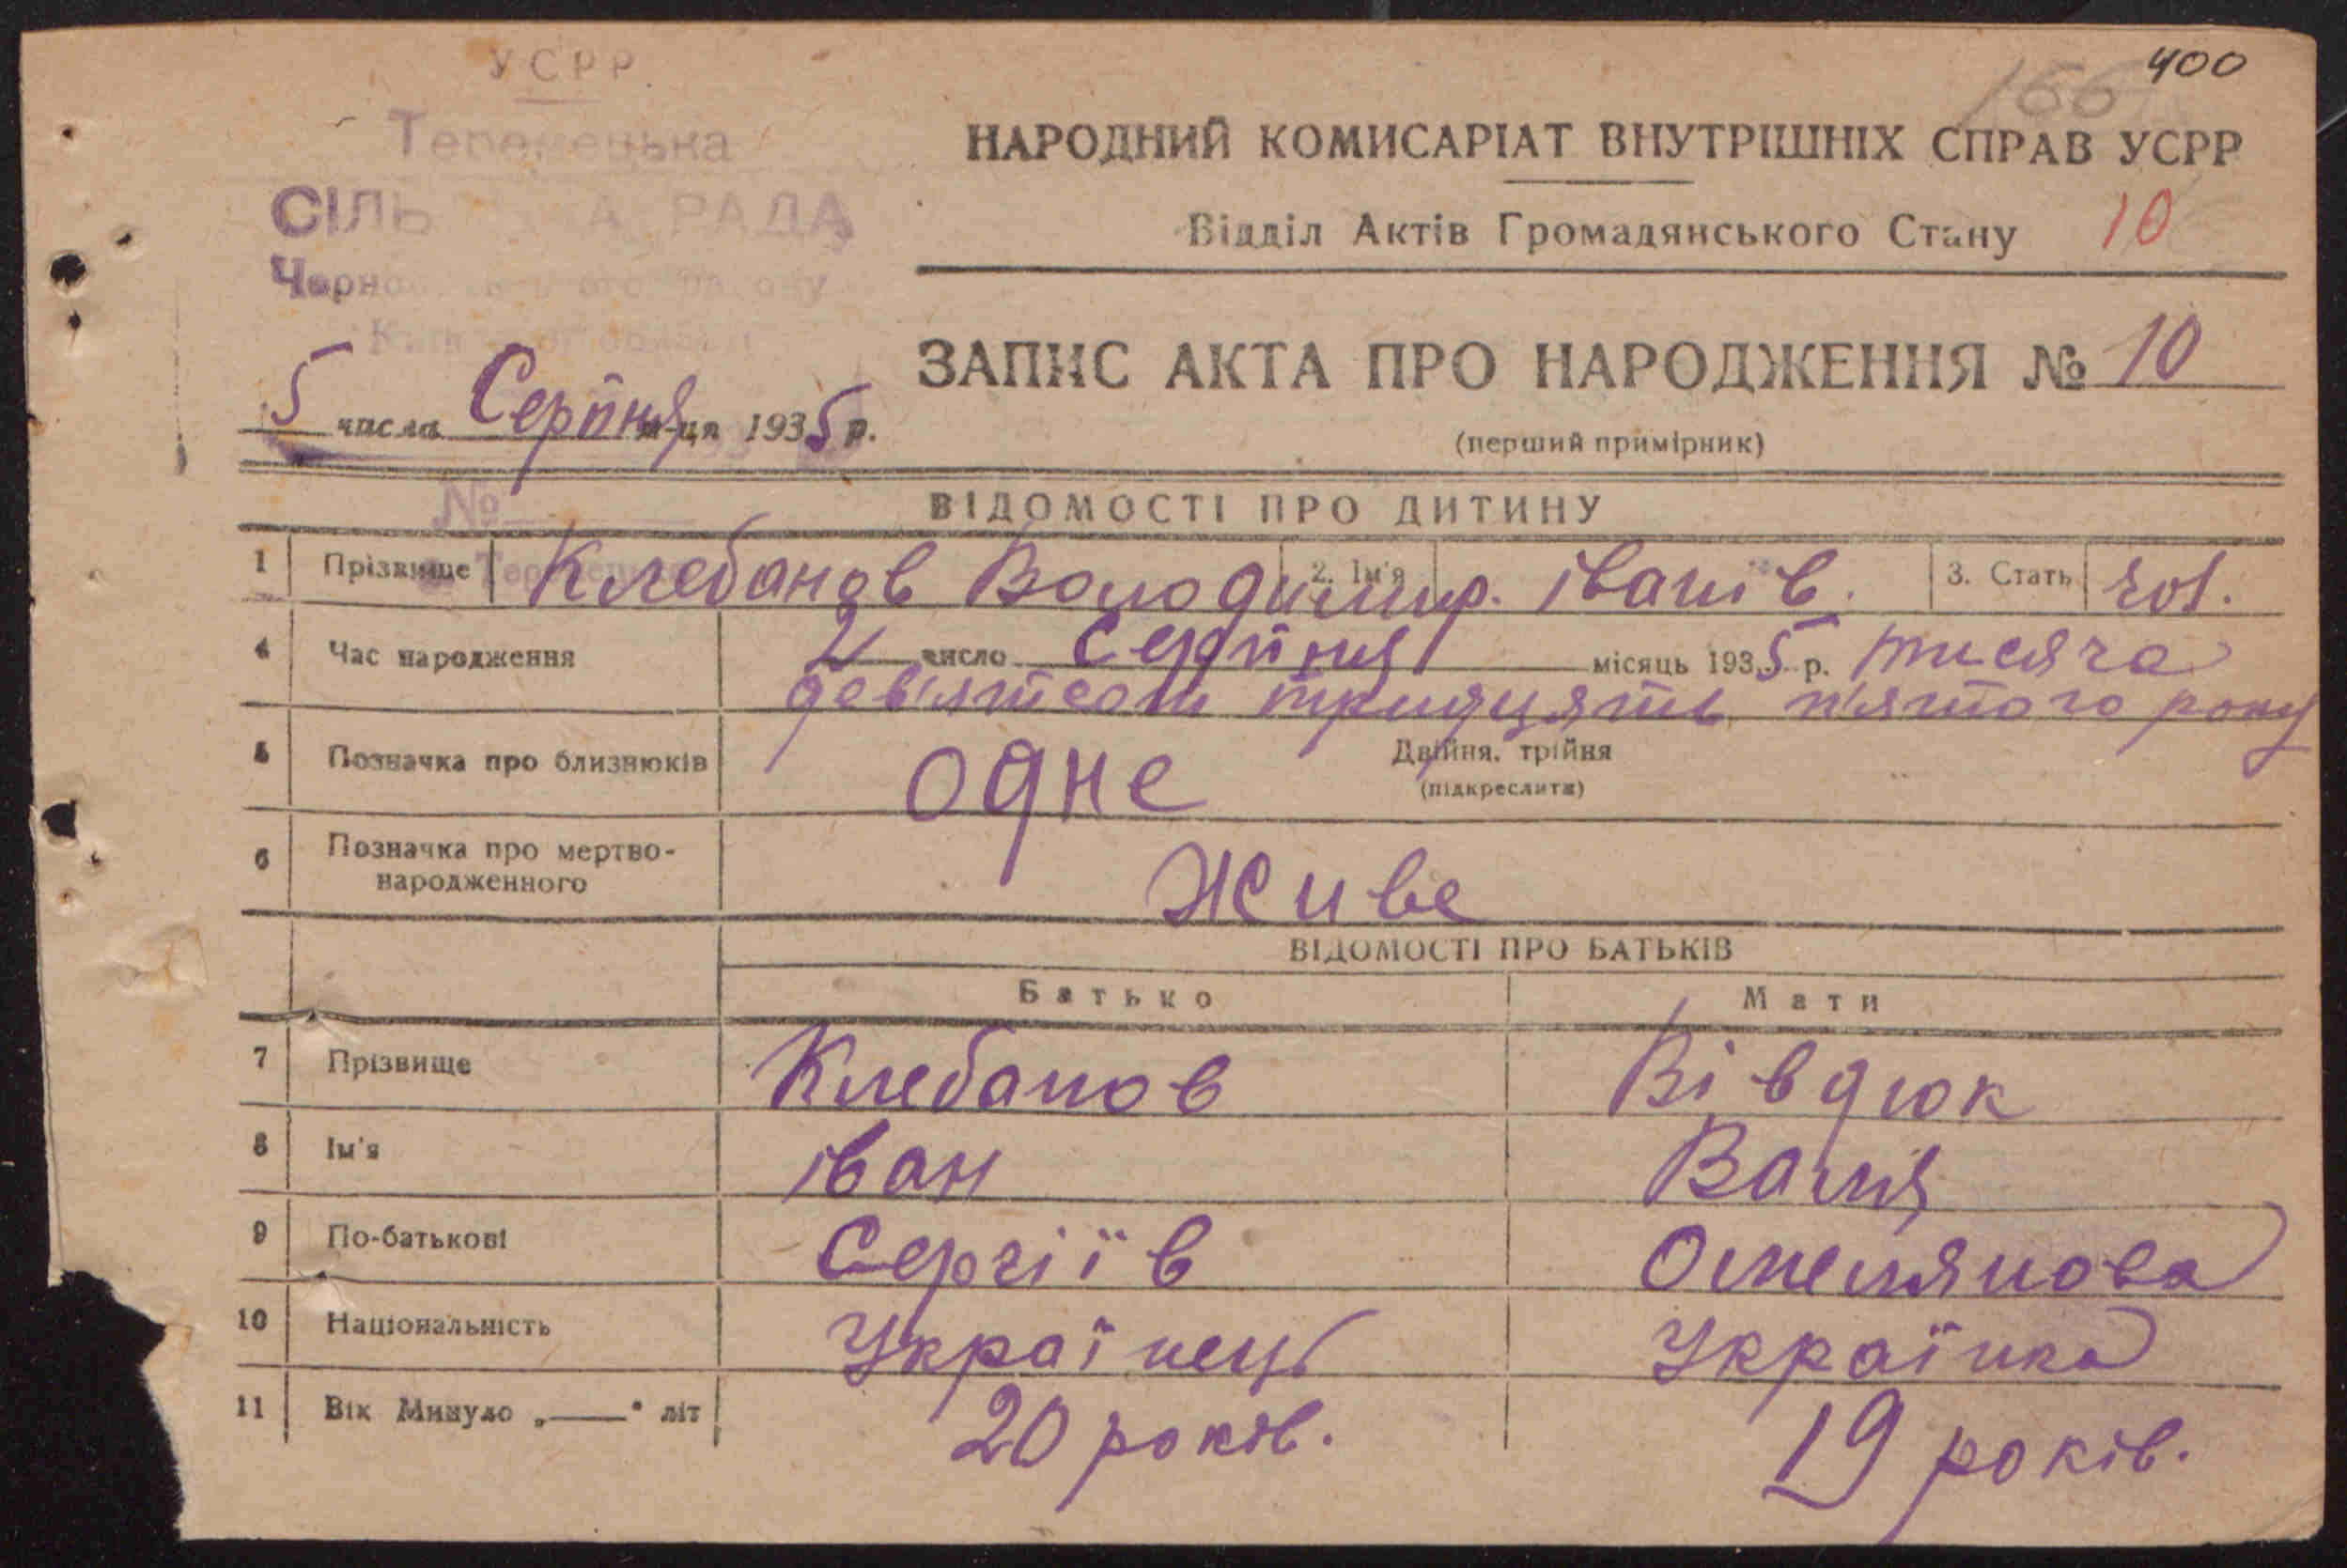 УСРР
400
166
Теремецька
НАРОДНИЙ КОМИСАРІАТ ВНУТРІШНІХ СПРАВ УСРР
СІЛЬ А РАДА
Відділ Актів Громадянського Стану 10
ЗАПИС АКТА ПРО НАРОДЖЕННЯ № 10
5 числа Серпня м-ця 1935 р.
(перший примірник)
№
ВІДОМОСТІ ПРО ДИТИНУ
1 Прізвище Клебанов Володимир. іванів. 2. Ім'я 3. Стать чол.
4 Час народження 2 число Серпня місяць 1935 р. тисяча
девятсот тридцять пятого року
5 Позначка про близнюків одне Двійня, трійня
(підкреслити)
6 Позначка про мертво-
народженного Живе
ВІДОМОСТІ ПРО БАТЬКІВ
Батько Мати
7 Прізвище Клебанов Вівдюк
8 Ім'я іван Валя
9 По-батькові Сергіїв Омелянова
10 Національність Українець Українка
11 Вік Минуло „——“ літ 20 років. 19 років.